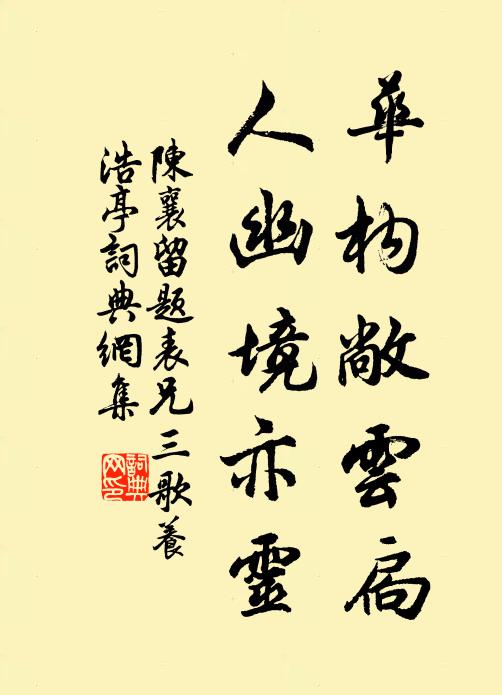 華构敞雲扃
人幽境亦靈
陳襄留題表兄三歌養
浩亭詞典網集
詞典
网印